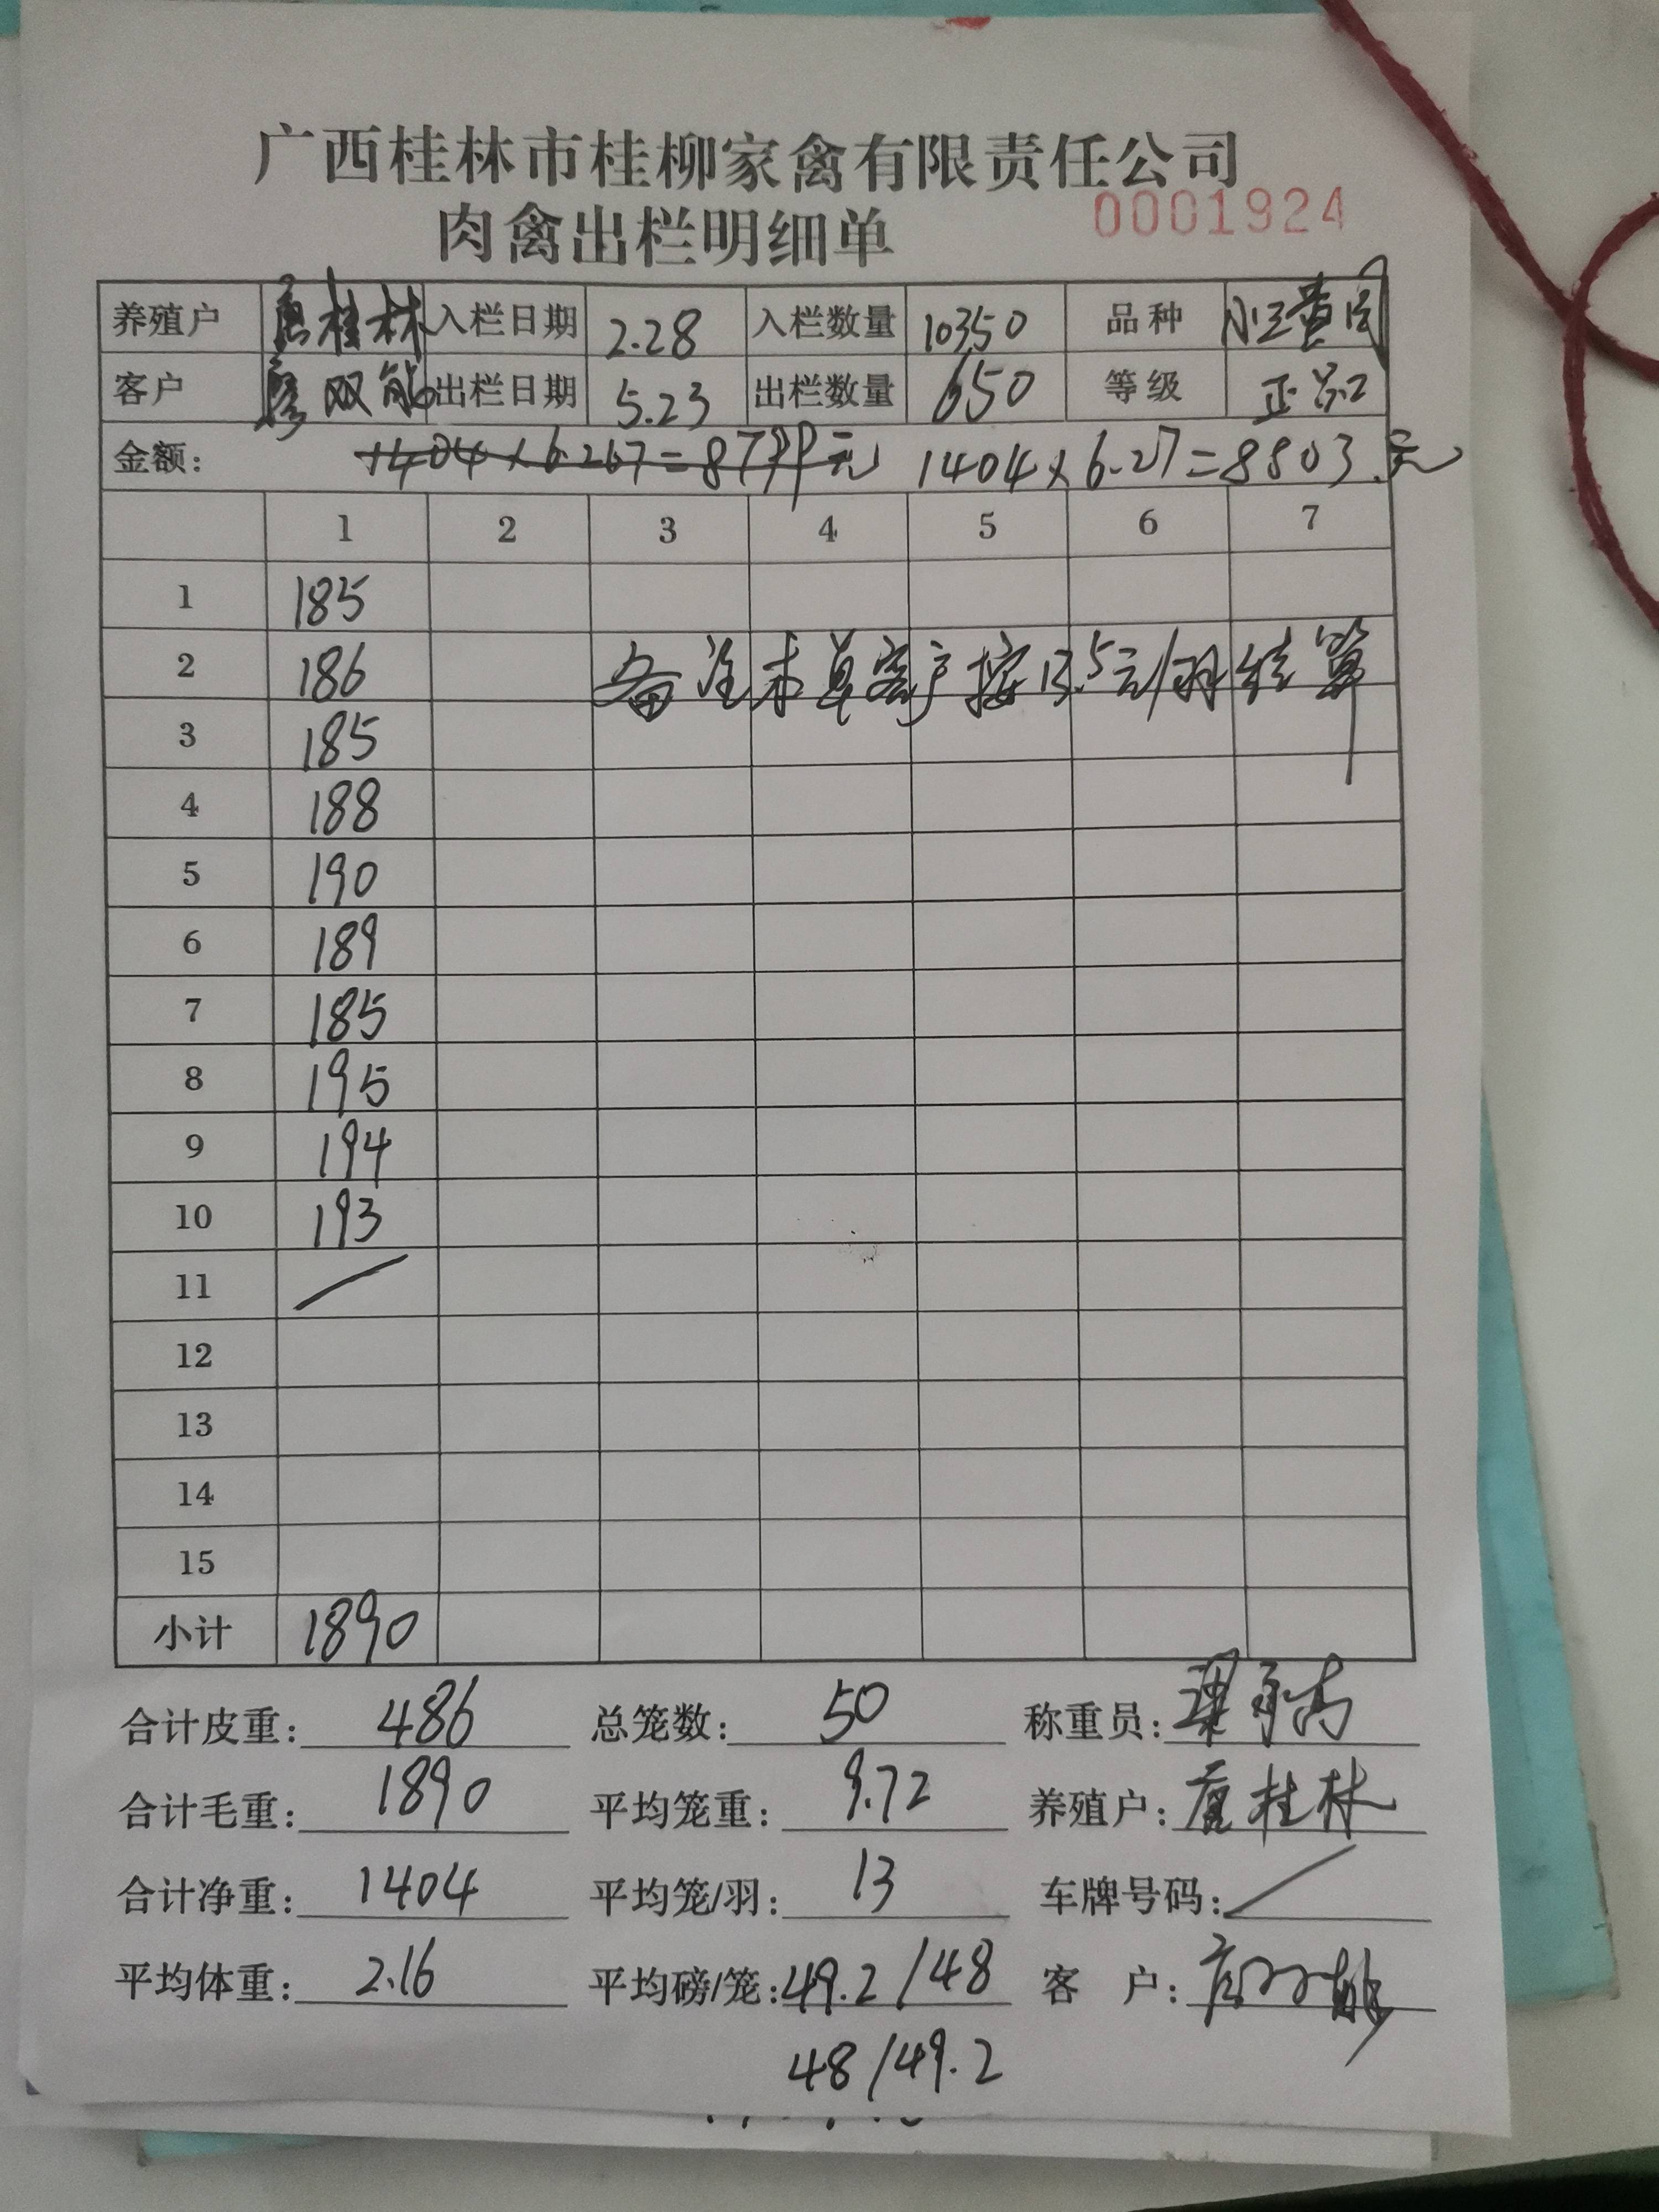 广西桂林市桂柳家禽有限责任公司
肉禽出栏明细单 0001924
养殖户 唐桂林 入栏日期 2.28 入栏数量 10350 品种
客户 双能 出栏日期 5.23 出栏数量 650 等级 正品
金额: 1404×6.267= 元 1404×6.27=8803.元
1 2 3 4 5 6 7
1 185
2 186 备注 本单客户按13.5元/羽结算
3 185
4 188
5 190
6 189
7 185
8 195
9 194
10 193
11 /
12
13
14
15
小计 1890
合计皮重: 486 总笼数: 50 称重员:
合计毛重: 1890 平均笼重: 9.72 养殖户: 唐桂林
合计净重: 1404 平均笼/羽: 13 车牌号码: /
平均体重: 2.16 平均磅/笼: 49.2/48 客 户:
48/49.2